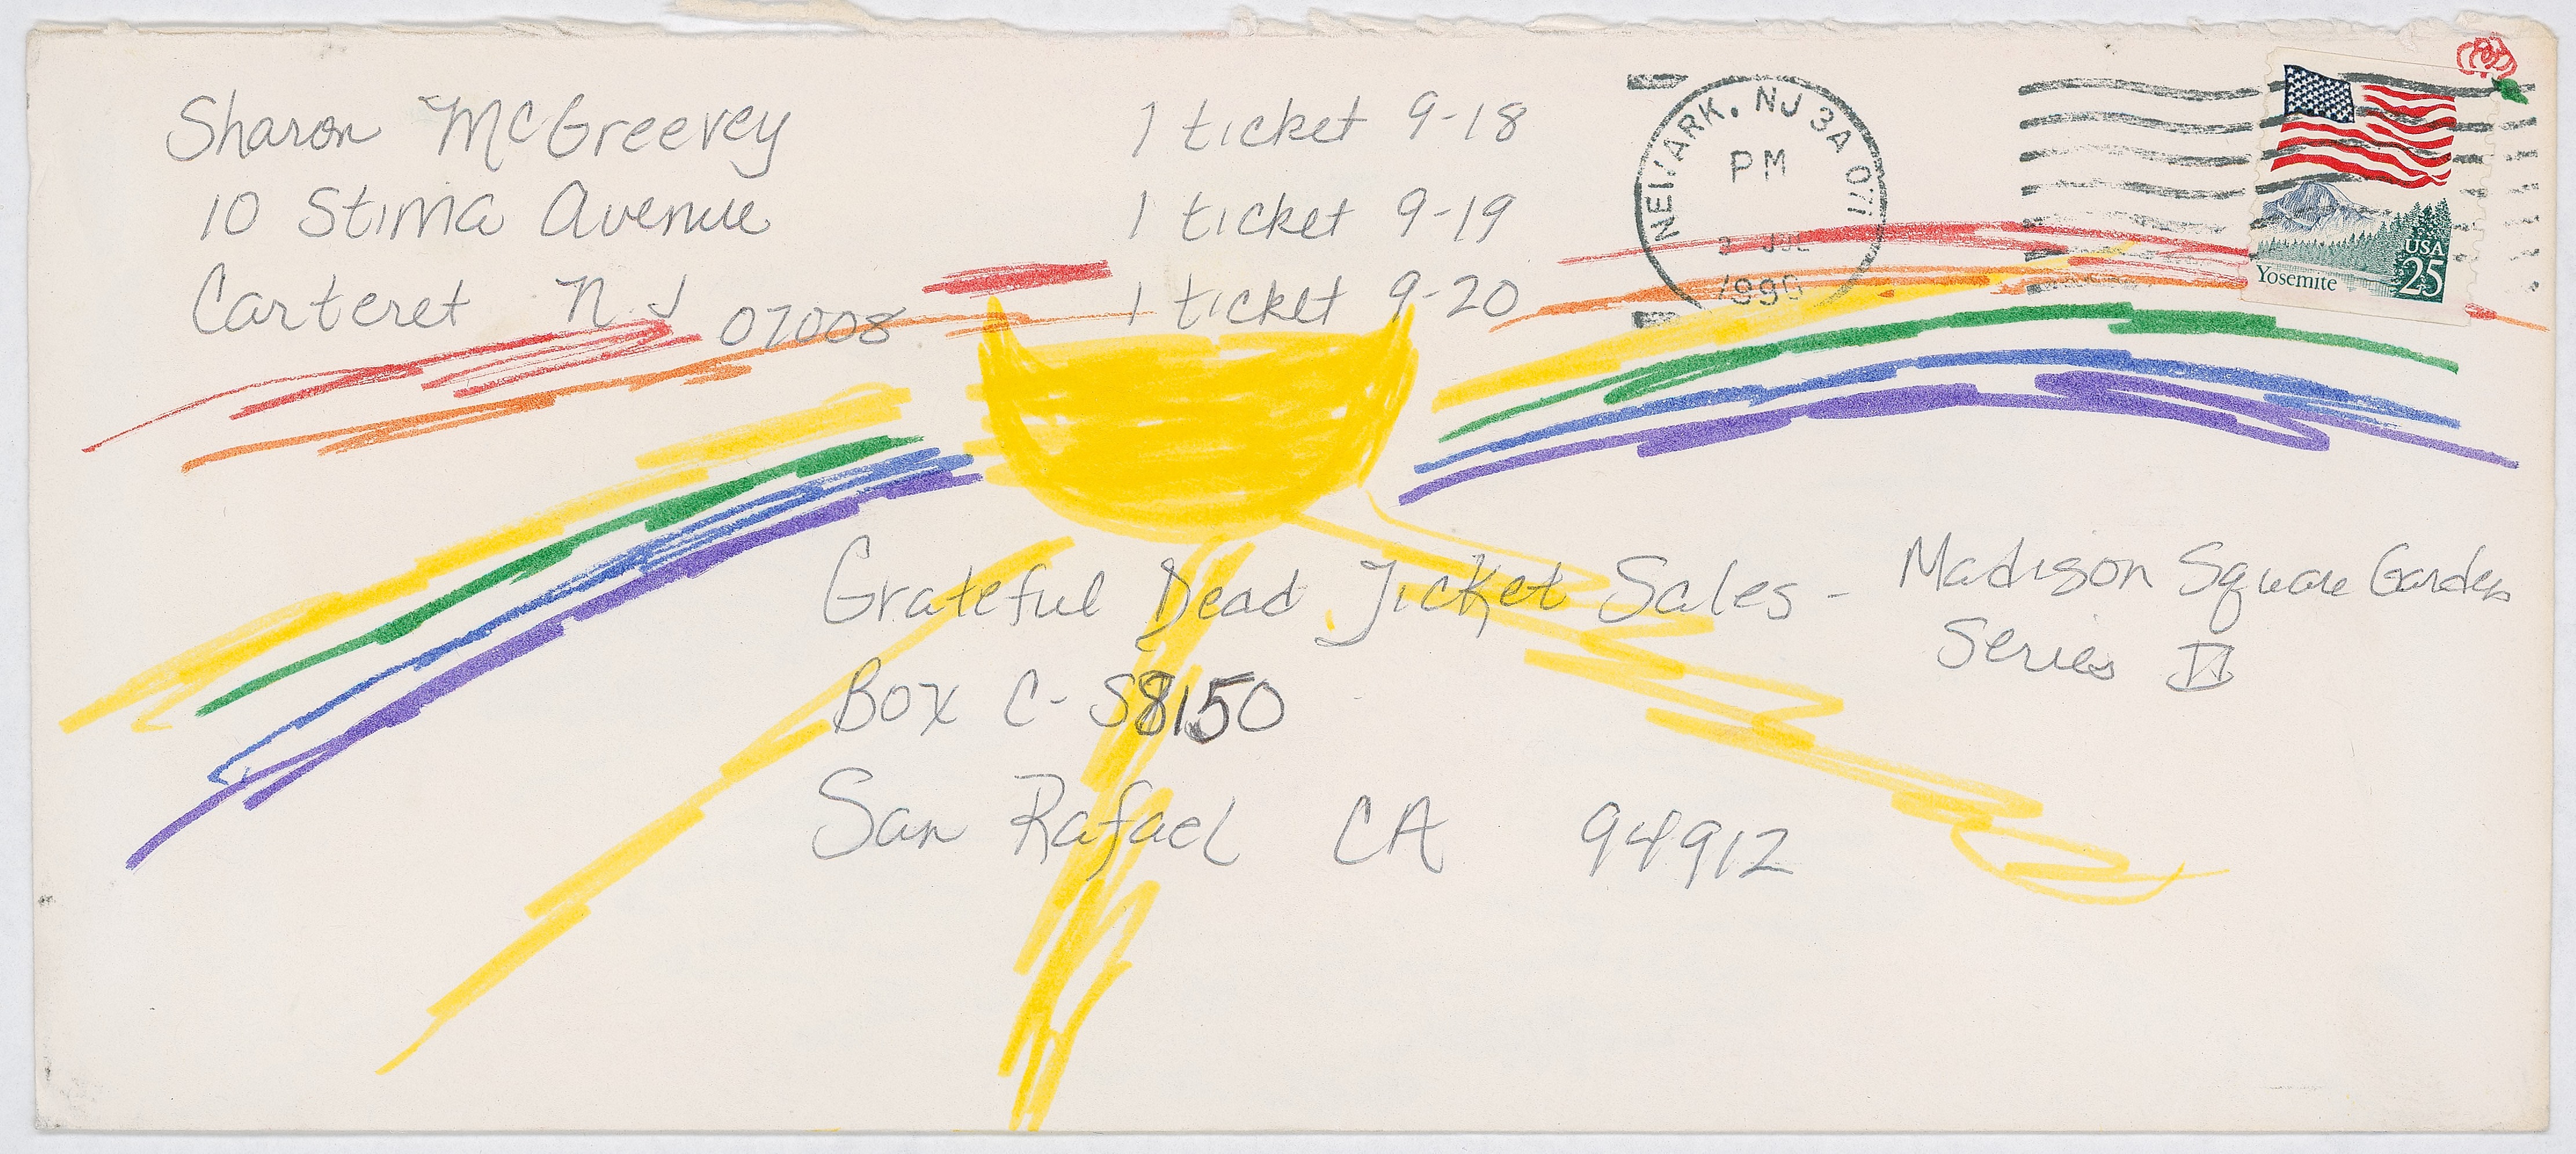 Sharon McGreevey
10 Stima Avenue
Carteret NJ 07008
1 ticket 9-18
1 ticket 9-19
1 ticket 9-20
NEWARK, NJ 3A 071
PM
JUL
1990
USA
25
Yosemite
Grateful Dead Ticket Sales - Madison Square Garden
Series IV
Box C-S8150
San Rafael CA 94912